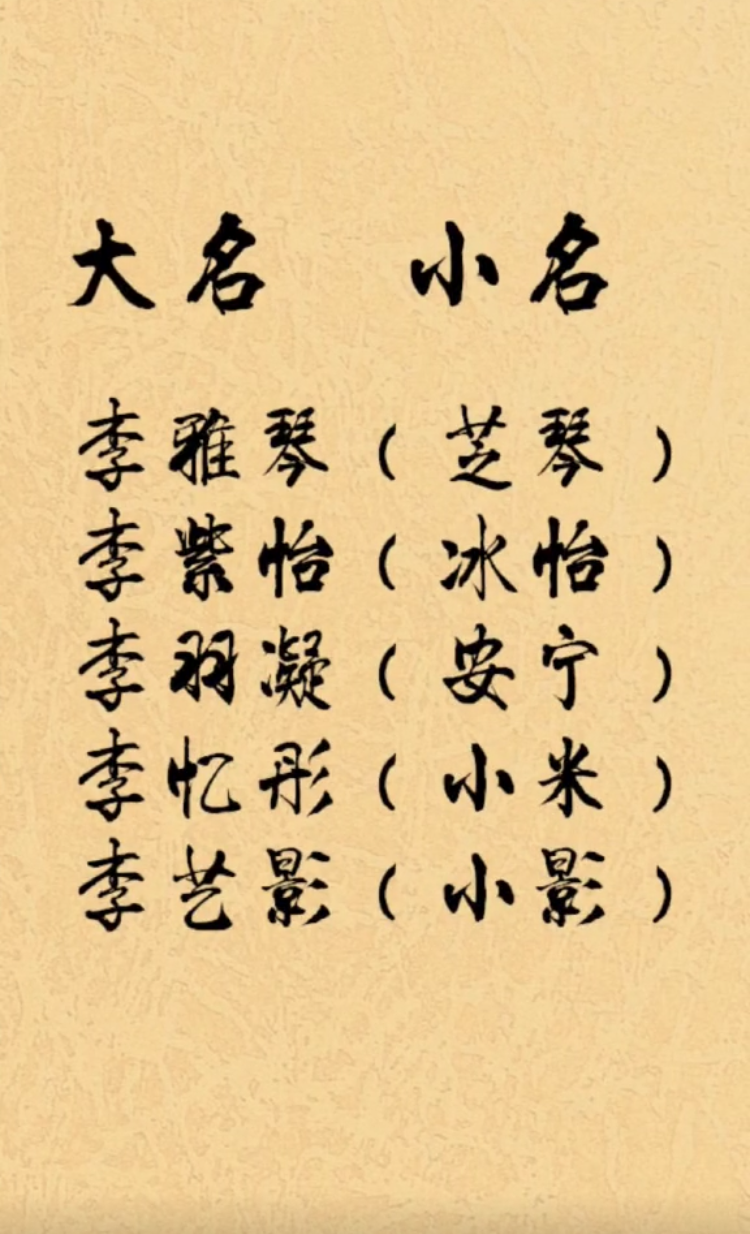 大名 小名
李雅琴（芝琴）
李紫怡（冰怡）
李羽凝（安宁）
李忆彤（小米）
李艺影（小影）